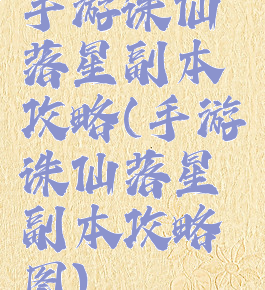 手游诛仙
落星副本
攻略(手游
诛仙落星
副本攻略
图)